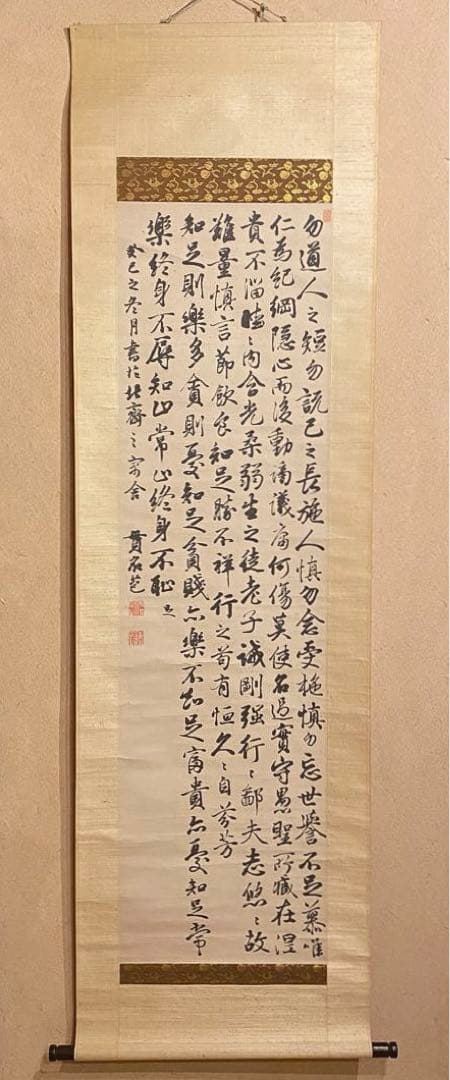 勿道人之短勿説己之長施人慎勿念受施慎勿忘世譽不足慕唯
仁為紀綱隠心而後動謗議庸何傷莫使名過實守愚聖所臧在涅
貴不淄曖〻内含光柔弱生之徒老子誡剛强行〻鄙夫志悠〻故
難量慎言節飲食知足勝不祥行之苟有恒久〻自芬芳
知足則樂多貪則憂知足貧賤亦樂不知足富貴亦憂知足常
樂終身不辱知止常止終身不恥
癸巳之冬月書於北齋之舍 貫名苞